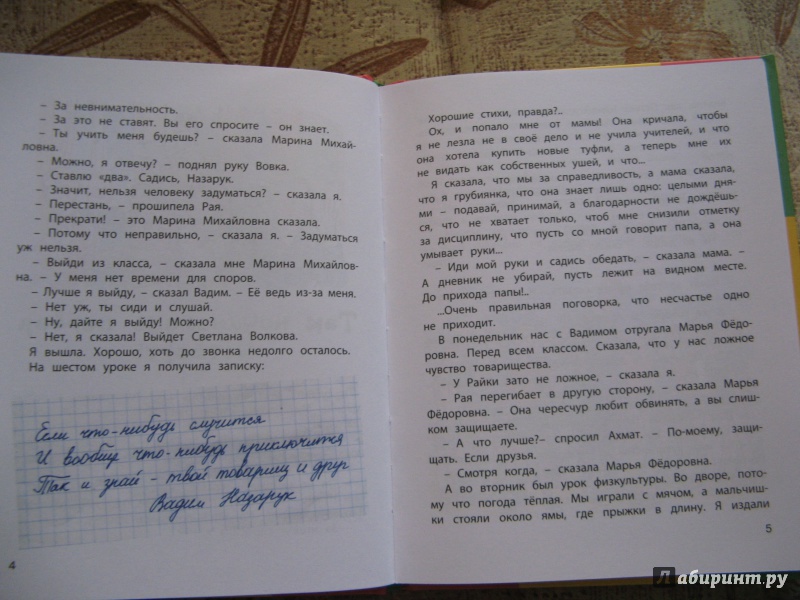 – За невнимательность.
– За это не ставят. Вы его спросите – он знает.
– Ты учить меня будешь? – сказала Марина Михай-
ловна.
– Можно, я отвечу? – поднял руку Вовка.
– Ставлю «два». Садись, Назарук.
– Значит, нельзя человеку задуматься? – сказала я.
– Перестань, – прошипела Рая.
– Прекрати! – это Марина Михайловна сказала.
– Потому что неправильно, – сказала я. – Задуматься
уж нельзя.
– Выйди из класса, – сказала мне Марина Михайлов-
на. – У меня нет времени для споров.
– Лучше я выйду, – сказал Вадим. – Её ведь из-за меня.
– Нет уж, ты сиди и слушай.
– Ну, дайте я выйду! Можно?
– Нет, я сказала! Выйдет Светлана Волкова.
Я вышла. Хорошо, хоть до звонка недолго осталось.
На шестом уроке я получила записку:
Если что-нибудь случится
И вообще что-нибудь приключится
Так и знай – твой товарищ и друг
Вадим Назарук
4
Хорошие стихи, правда?..
Ох, и попало мне от мамы! Она кричала, чтобы
я не лезла не в своё дело и не учила учителей, и что
она хотела купить новые туфли, а теперь мне их
не видать как собственных ушей, и что...
Я сказала, что мы за справедливость, а мама сказала,
что я грубиянка, что она знает лишь одно: целыми дня-
ми – подавай, принимай, а благодарности не дождёшь-
ся, что не хватает только, чтоб мне снизили отметку
за дисциплину, что пусть со мной говорит папа, а она
умывает руки...
– Иди мой руки и садись обедать, – сказала мама. –
А дневник не убирай, пусть лежит на видном месте.
До прихода папы!..
...Очень правильная поговорка, что несчастье одно
не приходит.
В понедельник нас с Вадимом отругала Марья Фёдо-
ровна. Перед всем классом. Сказала, что у нас ложное
чувство товарищества.
– У Райки зато не ложное, – сказала я.
– Рая перегибает в другую сторону, – сказала Марья
Фёдоровна. – Она чересчур любит обвинять, а вы слиш-
ком защищаете.
– А что лучше?– спросил Ахмат. – По-моему, защи-
щать. Если друзья.
– Смотря когда, – сказала Марья Фёдоровна.
А во вторник был урок физкультуры. Во дворе, пото-
му что погода тёплая. Мы играли с мячом, а мальчиш-
ки стояли около ямы, где прыжки в длину. Я издали
5
Лабиринт.ру